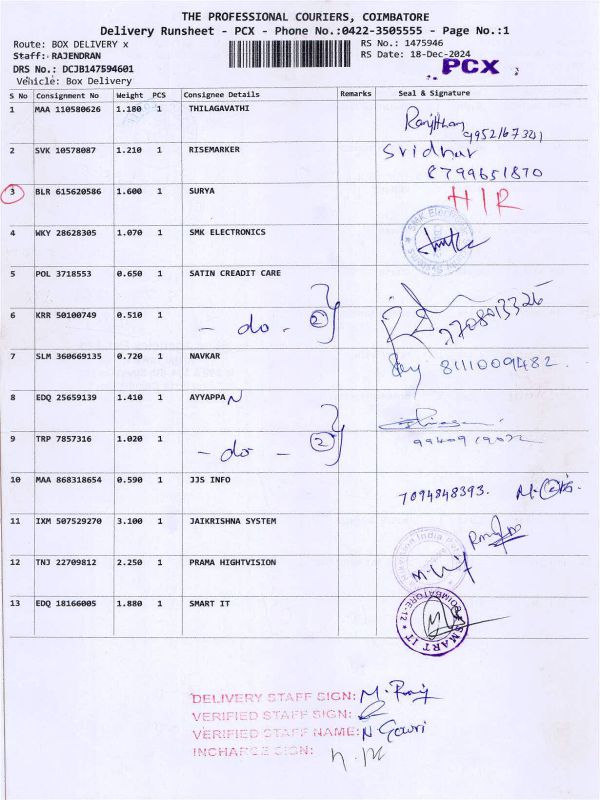 THE PROFESSIONAL COURIERS, COIMBATORE
Delivery Runsheet - PCX - Phone No.:0422-3505555 - Page No.:1
Route: BOX DELIVERY x RS No.: 1475946
Staff: RAJENDRAN RS Date: 18-Dec-2024
DRS No.: DCJB147594601 PCX
Vehicle: Box Delivery
S No Consignment No Weight PCS Consignee Details Remarks Seal & Signature
1 MAA 110580626 1.180 1 THILAGAVATHI
2 SVK 10578087 1.210 1 RISEMARKER Sridhar
8799651870
3 BLR 615620586 1.600 1 SURYA H/R
4 WKY 28628305 1.070 1 SMK ELECTRONICS
5 POL 3718553 0.650 1 SATIN CREADIT CARE
6 KRR 50100749 0.510 1 - do - 2
7 SLM 360669135 0.720 1 NAVKAR 8111009482
8 EDQ 25659139 1.410 1 AYYAPPAN
9 TRP 7857316 1.020 1 - do - 2
10 MAA 868318654 0.590 1 JJS INFO 7094848393.
11 IXM 507529270 3.100 1 JAIKRISHNA SYSTEM
12 TNJ 22709812 2.250 1 PRAMA HIGHTVISION
13 EDQ 18166005 1.880 1 SMART IT SMART IT COIMBATORE-12
DELIVERY STAFF SIGN:
VERIFIED STAFF SIGN:
VERIFIED STAFF NAME: N Gowri
INCHARGE SIGN: